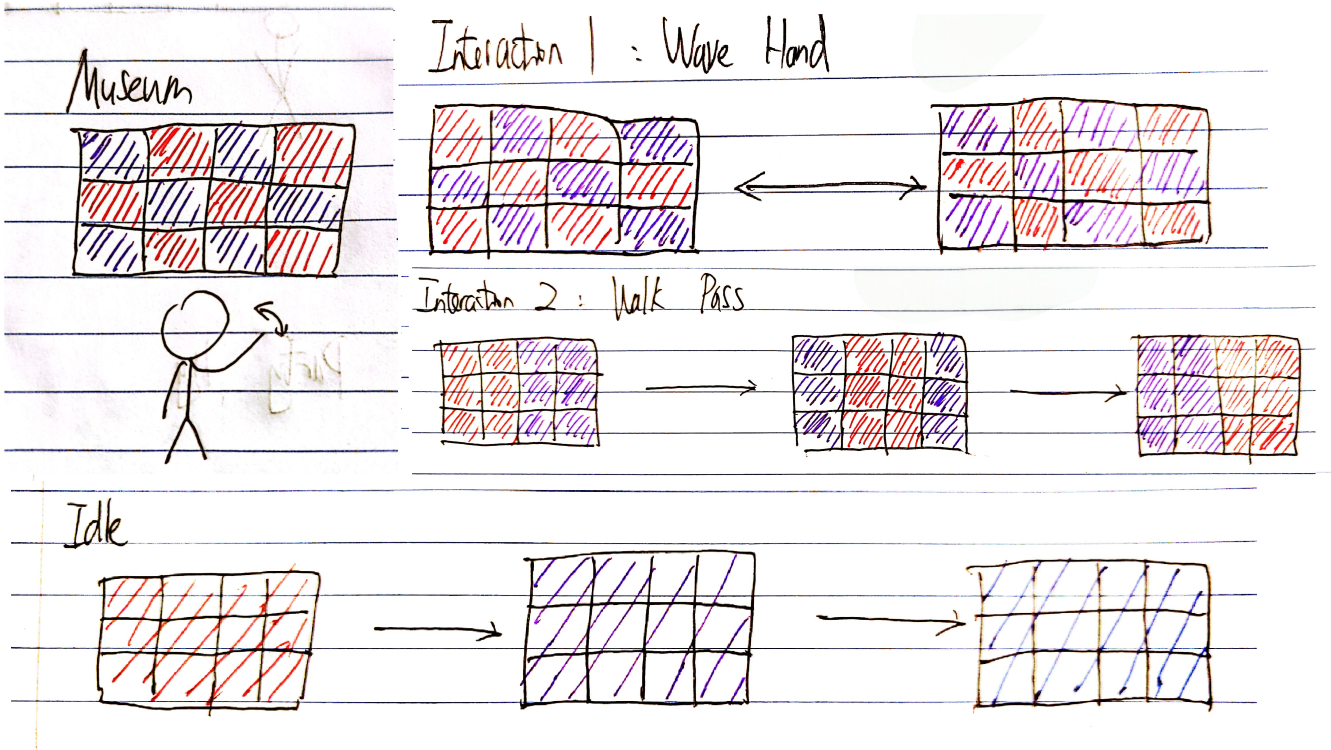 Museum
Interaction 1 : Wave Hand
Interaction 2 : Walk Pass
Idle